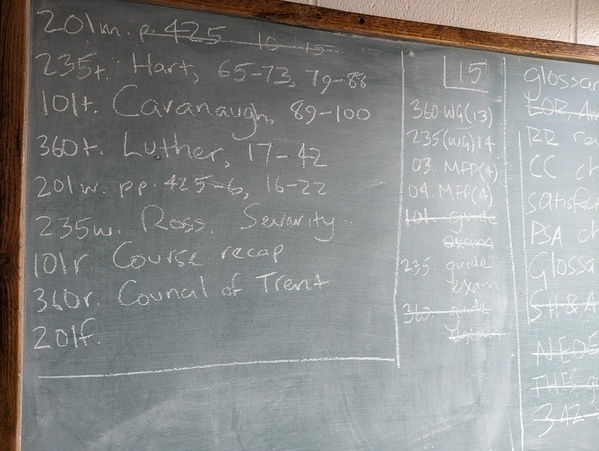 201m. p. 425 10-15
235t. Hart, 65-73, 79-88
101t. Cavanaugh, 89-100
360t. Luther, 17-42
201w. pp. 425-6, 16-22
235w. Ross. Severity..
101r. Course recap
360r. Council of Trent
201f.
15
360 WG(13)
235(WG)14
03. MFP(4)
04. MFP(4)
101. guide
exam
235. guide
exam
360. guide
glossar
RR re
CC ch
satisfact
PSA ch
Glossa
SH & A
342